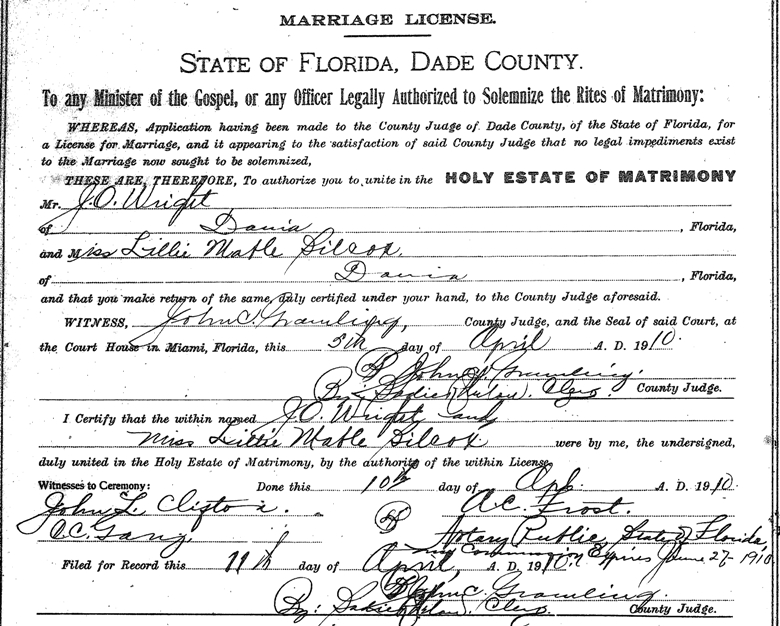 MARRIAGE LICENSE.
STATE OF FLORIDA, DADE COUNTY.
To any Minister of the Gospel, or any Officer Legally Authorized to Solemnize the Rites of Matrimony:
WHEREAS, Application having been made to the County Judge of Dade County, of the State of Florida, for
a License for Marriage, and it appearing to the satisfaction of said County Judge that no legal impediments exist
to the Marriage now sought to be solemnized,
THESE ARE, THEREFORE, To authorize you to unite in the HOLY ESTATE OF MATRIMONY
Mr. J.O. Wright,
of Dania, Florida,
and Miss Lillie Mable Silcox.
of Dania, Florida,
and that you make return of the same, duly certified under your hand, to the County Judge aforesaid.
WITNESS, John C. Gramling, County Judge, and the Seal of said Court, at
the Court House in Miami, Florida, this 5th day of April A. D. 1910.
John C. Gramling.
By: Clerk. County Judge.
I Certify that the within named J.O. Wright and
Miss Lillie Mable Silcox were by me, the undersigned,
duly united in the Holy Estate of Matrimony, by the authority of the within License.
Witnesses to Ceremony: Done this 10th day of Apl. A. D. 1910.
John L. Clifton. A.C. Frost.
Notary Public, State of Florida,
my Commission Expires June 27- 1910
Filed for Record this 11th day of April, A. D. 1910.
John C. Gramling
By: Clerk. County Judge.